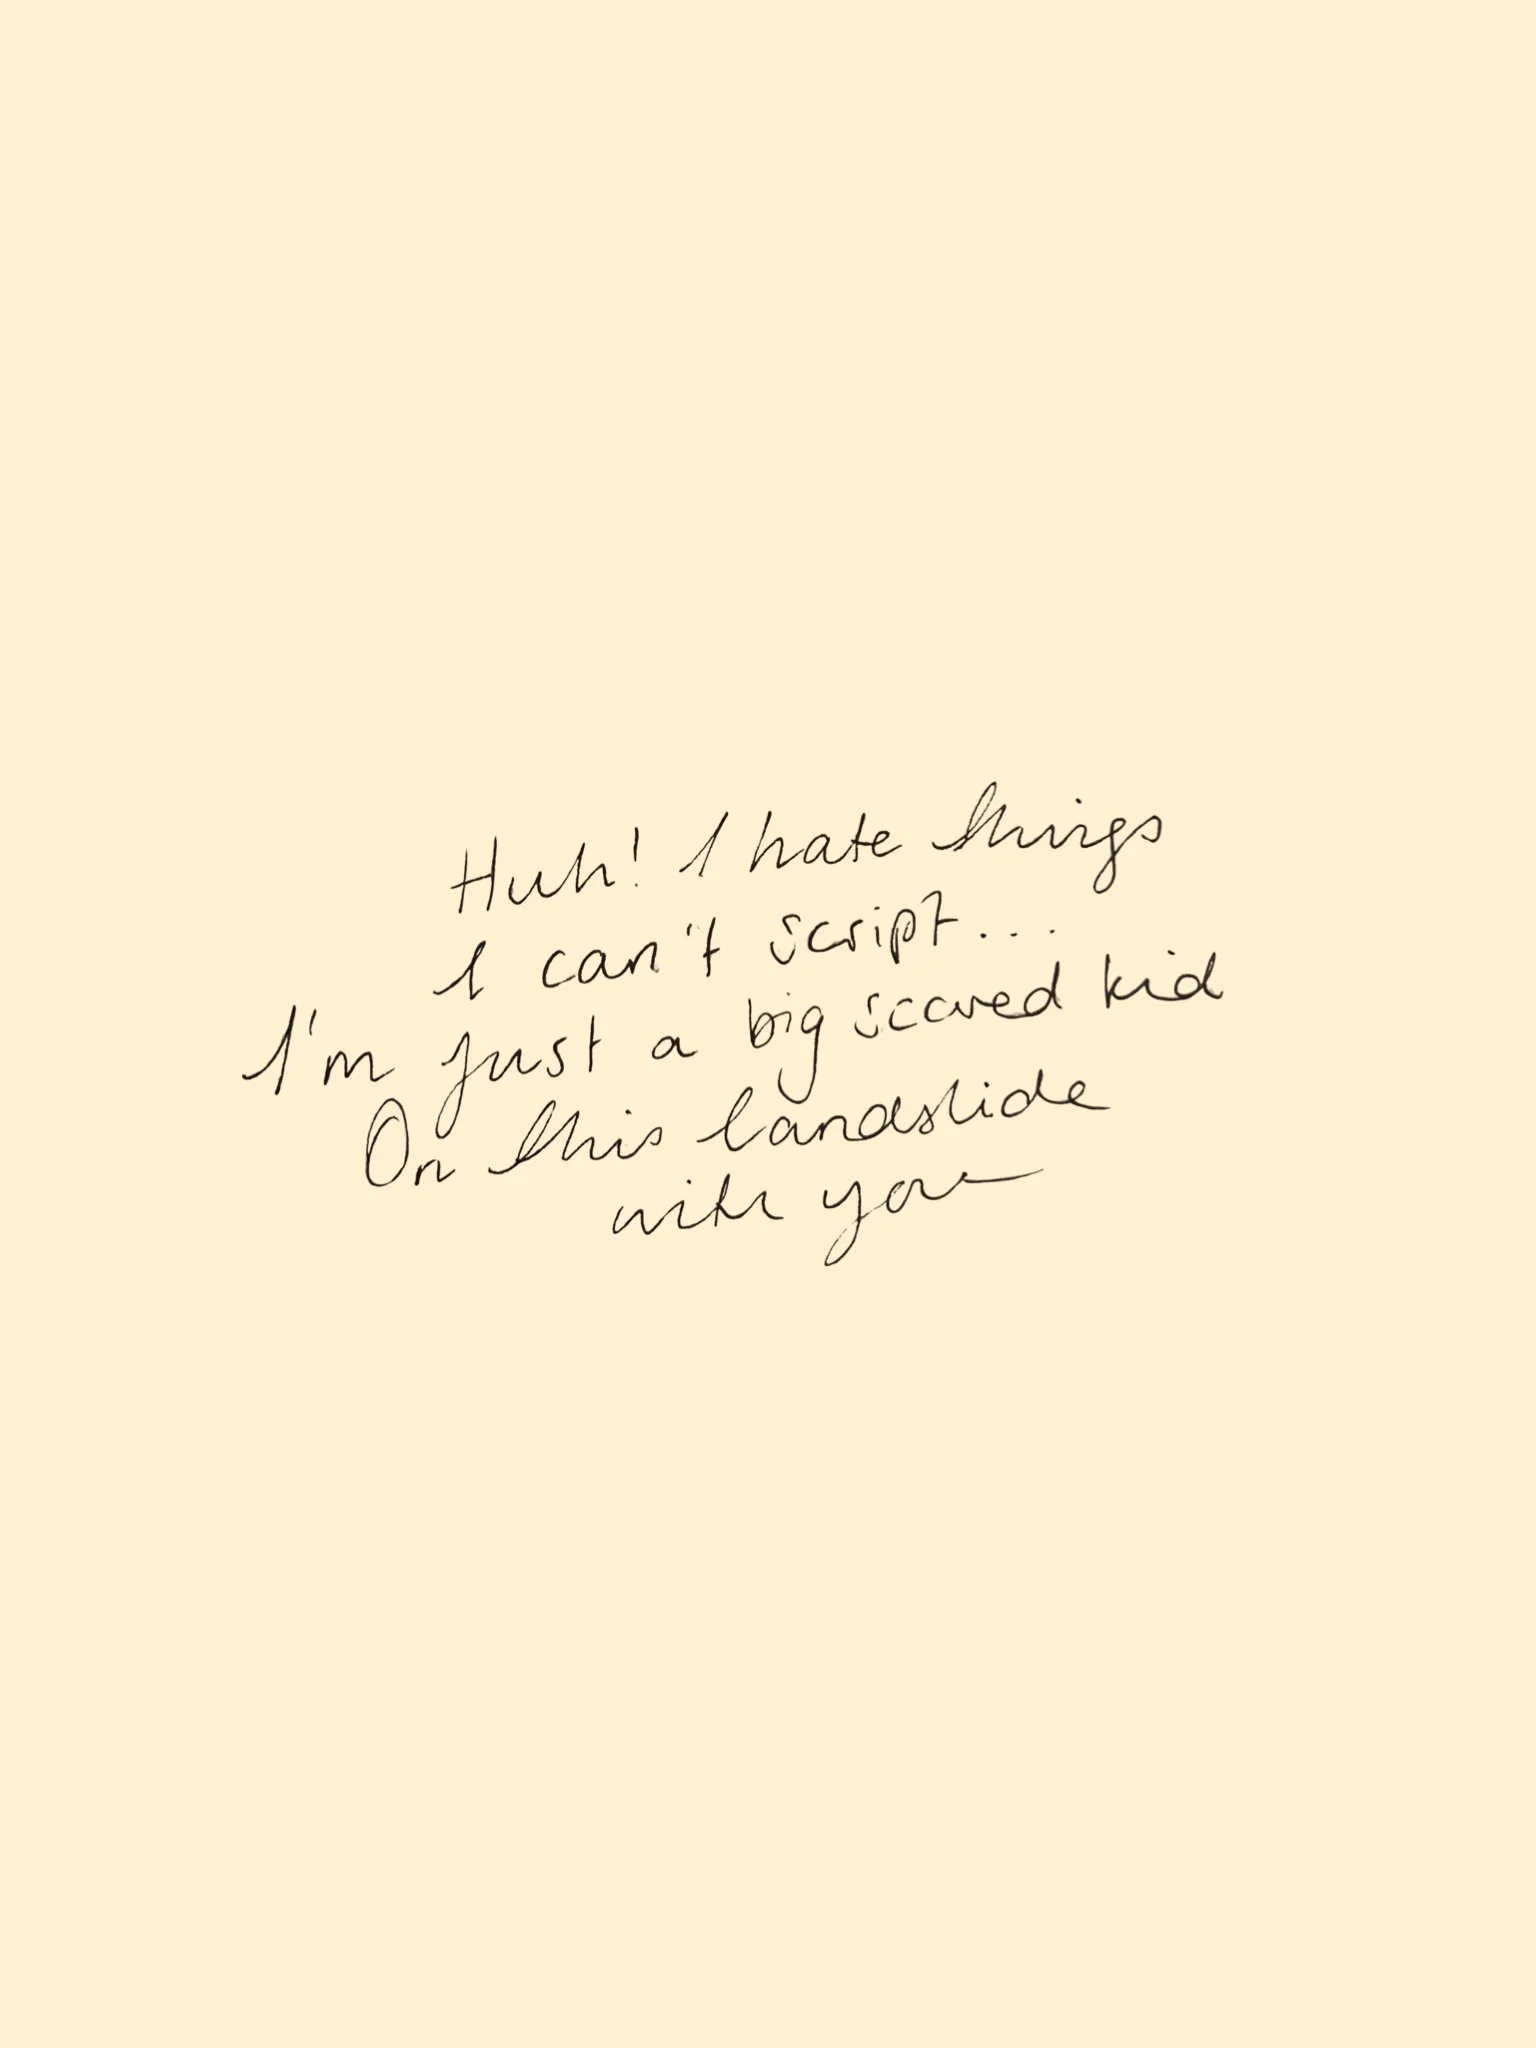 Huh! I hate things
I can't script...
I'm just a big scared kid
On this landslide
with you